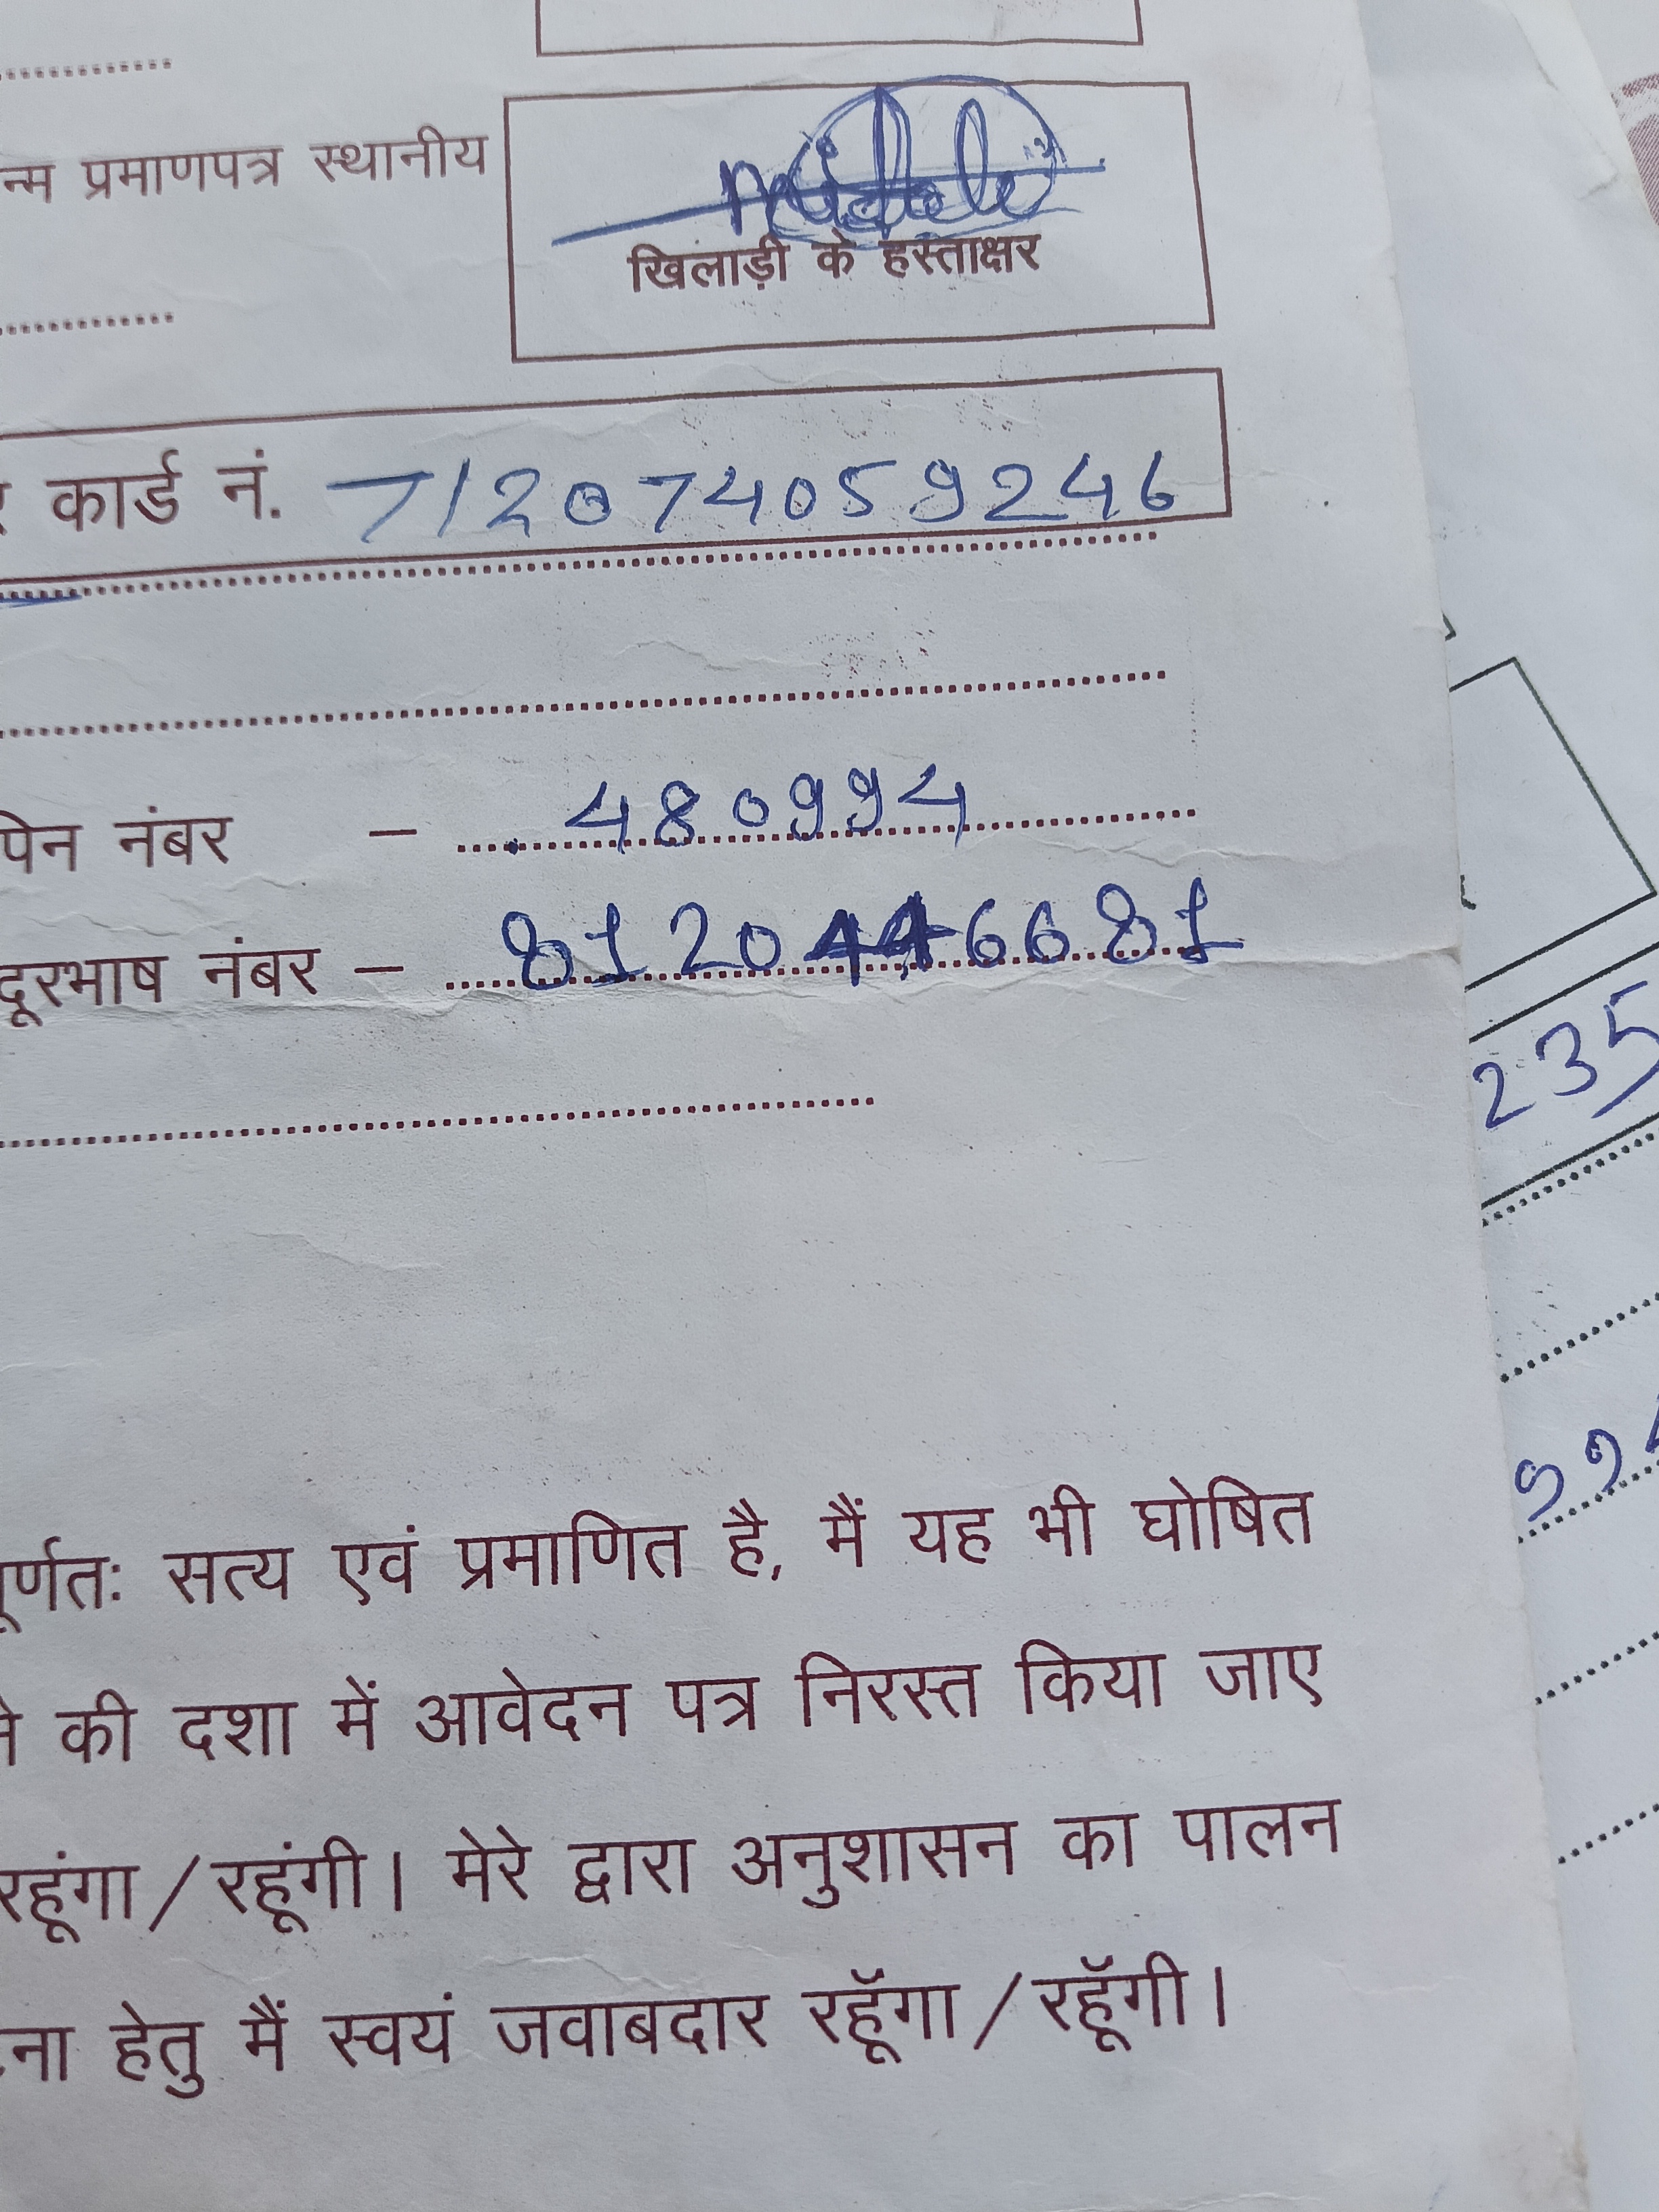 न्म प्रमाणपत्र स्थानीय
खिलाड़ी के हस्ताक्षर
कार्ड नं. 712074059246
पिन नंबर – 480994
दूरभाष नंबर – 8120446681
235
99
पूर्णतः सत्य एवं प्रमाणित है, मैं यह भी घोषित
की दशा में आवेदन पत्र निरस्त किया जाए
रहूंगा/रहूंगी। मेरे द्वारा अनुशासन का पालन
ना हेतु मैं स्वयं जवाबदार रहूॅगा/रहूॅगी।